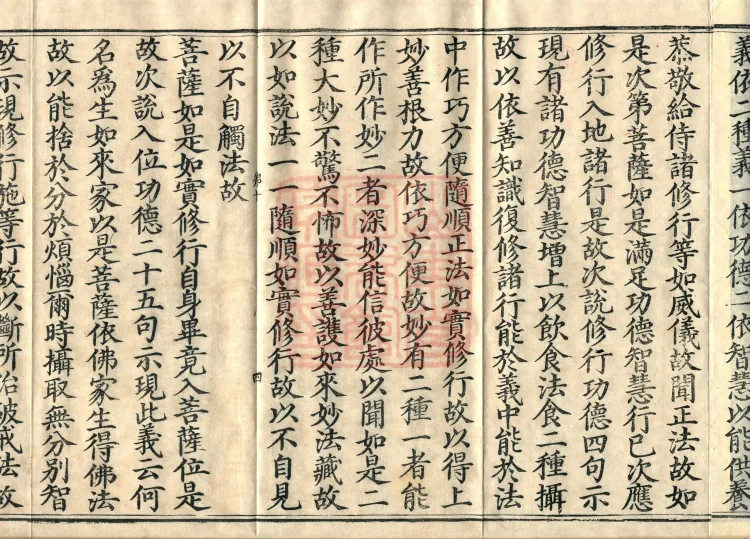 義依二種義一依功德二依智慧以能供養
恭敬給侍諸修行等如威儀故聞正法故如
是次第菩薩如是滿足功德智慧行已次應
修行入地諸行是故次說修行功德四句示
現有諸功德智慧增上以飲食法食二種攝
故以依善知識復修諸行能於義中能於法
中作巧方便隨順正法如實修行故以得上
妙善根力故依巧方便故妙有二種一者能
作所作妙二者深妙能信彼處以聞如是二
種大妙不驚不怖故以善護如來妙法藏故
以如說法一一隨順如實修行故以不自見
以不自觸法故
菩薩如是如實修行自身畢竟入菩薩位是
故次說入位功德二十五句示現此義云何
名爲生如來家以是菩薩依佛家生得佛法
故以能捨於分於煩惱爾時攝取無分別智
故示現修行施等行故以斷所治破戒法故